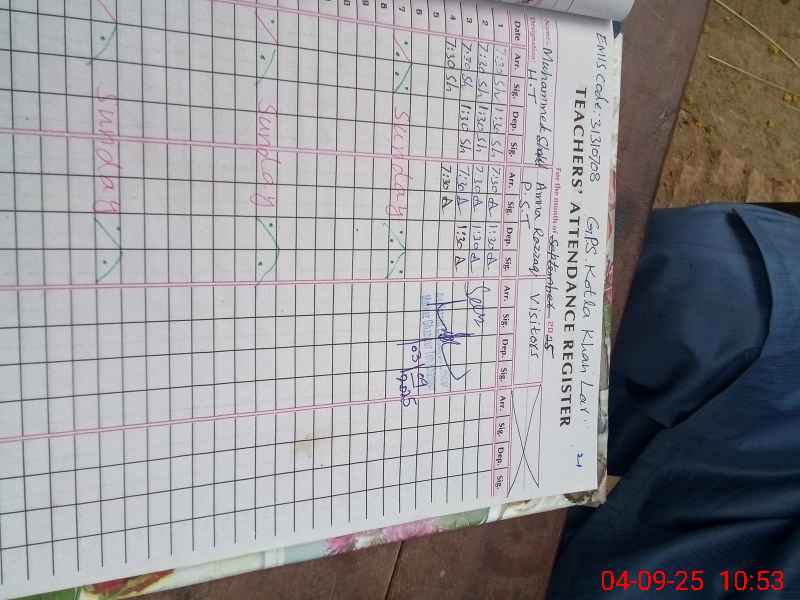 EMIS Code: 31310708 GPS. Kotla Khan Lar
21
TEACHERS' ATTENDANCE REGISTER
For the month of September 2025
Name: Muhammad Amna Razzaq Visitors
Designation: H.T P.S.T
Date Arr. Sig. Dep. Sig. Arr. Sig. Dep. Sig. Arr. Sig. Dep. Sig. Arr. Sig. Dep. Sig.
1 7:30 Sh 1:30 Sh 7:30 A 1:30 A
2 7:30 Sh 1:30 Sh 7:30 A 1:30 A Seen
3 7:30 Sh 1:30 Sh 7:30 A 1:30 A
4 7:30 Sh 7:30 A
5
6 03/09/2025
7 Sunday
8
Sunday
Sunday
04-09-25 10:53